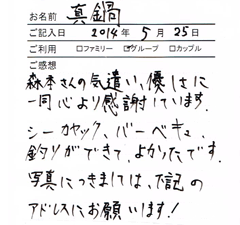 お名前 真鍋
ご記入日 2014年 5月 25日
ご利用 □ファミリー ☑グループ □カップル
ご感想
森本さんの気遣い、優しさに
一同心より感謝しています。
シーカヤック、バーベキュー、
釣りができて、よかったです。
写真につきましては、下記の
アドレスにお願いします!